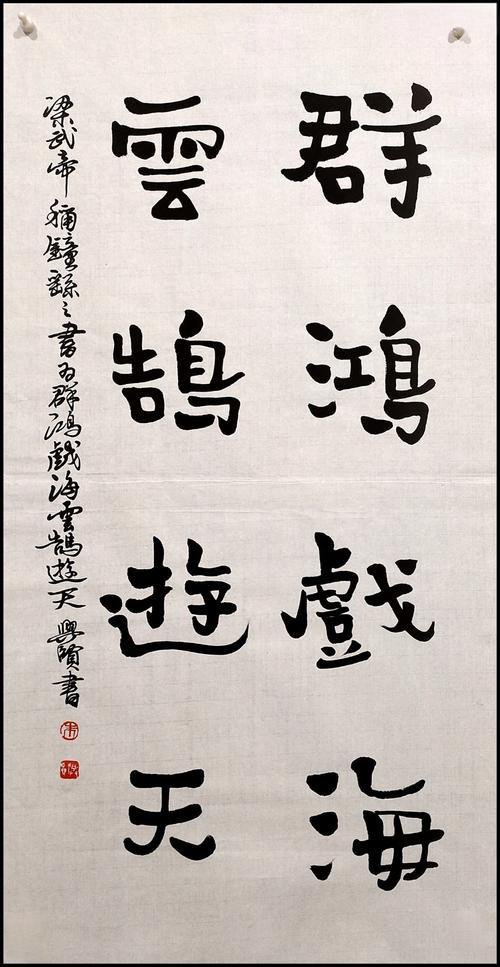 群鴻戲海
雲鵠遊天
梁武帝稱鍾繇之書為群鴻戲海雲鵠遊天 興賢書